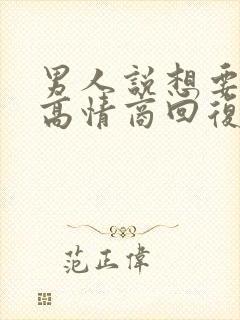 男人說想要
高情商回復
范正偉